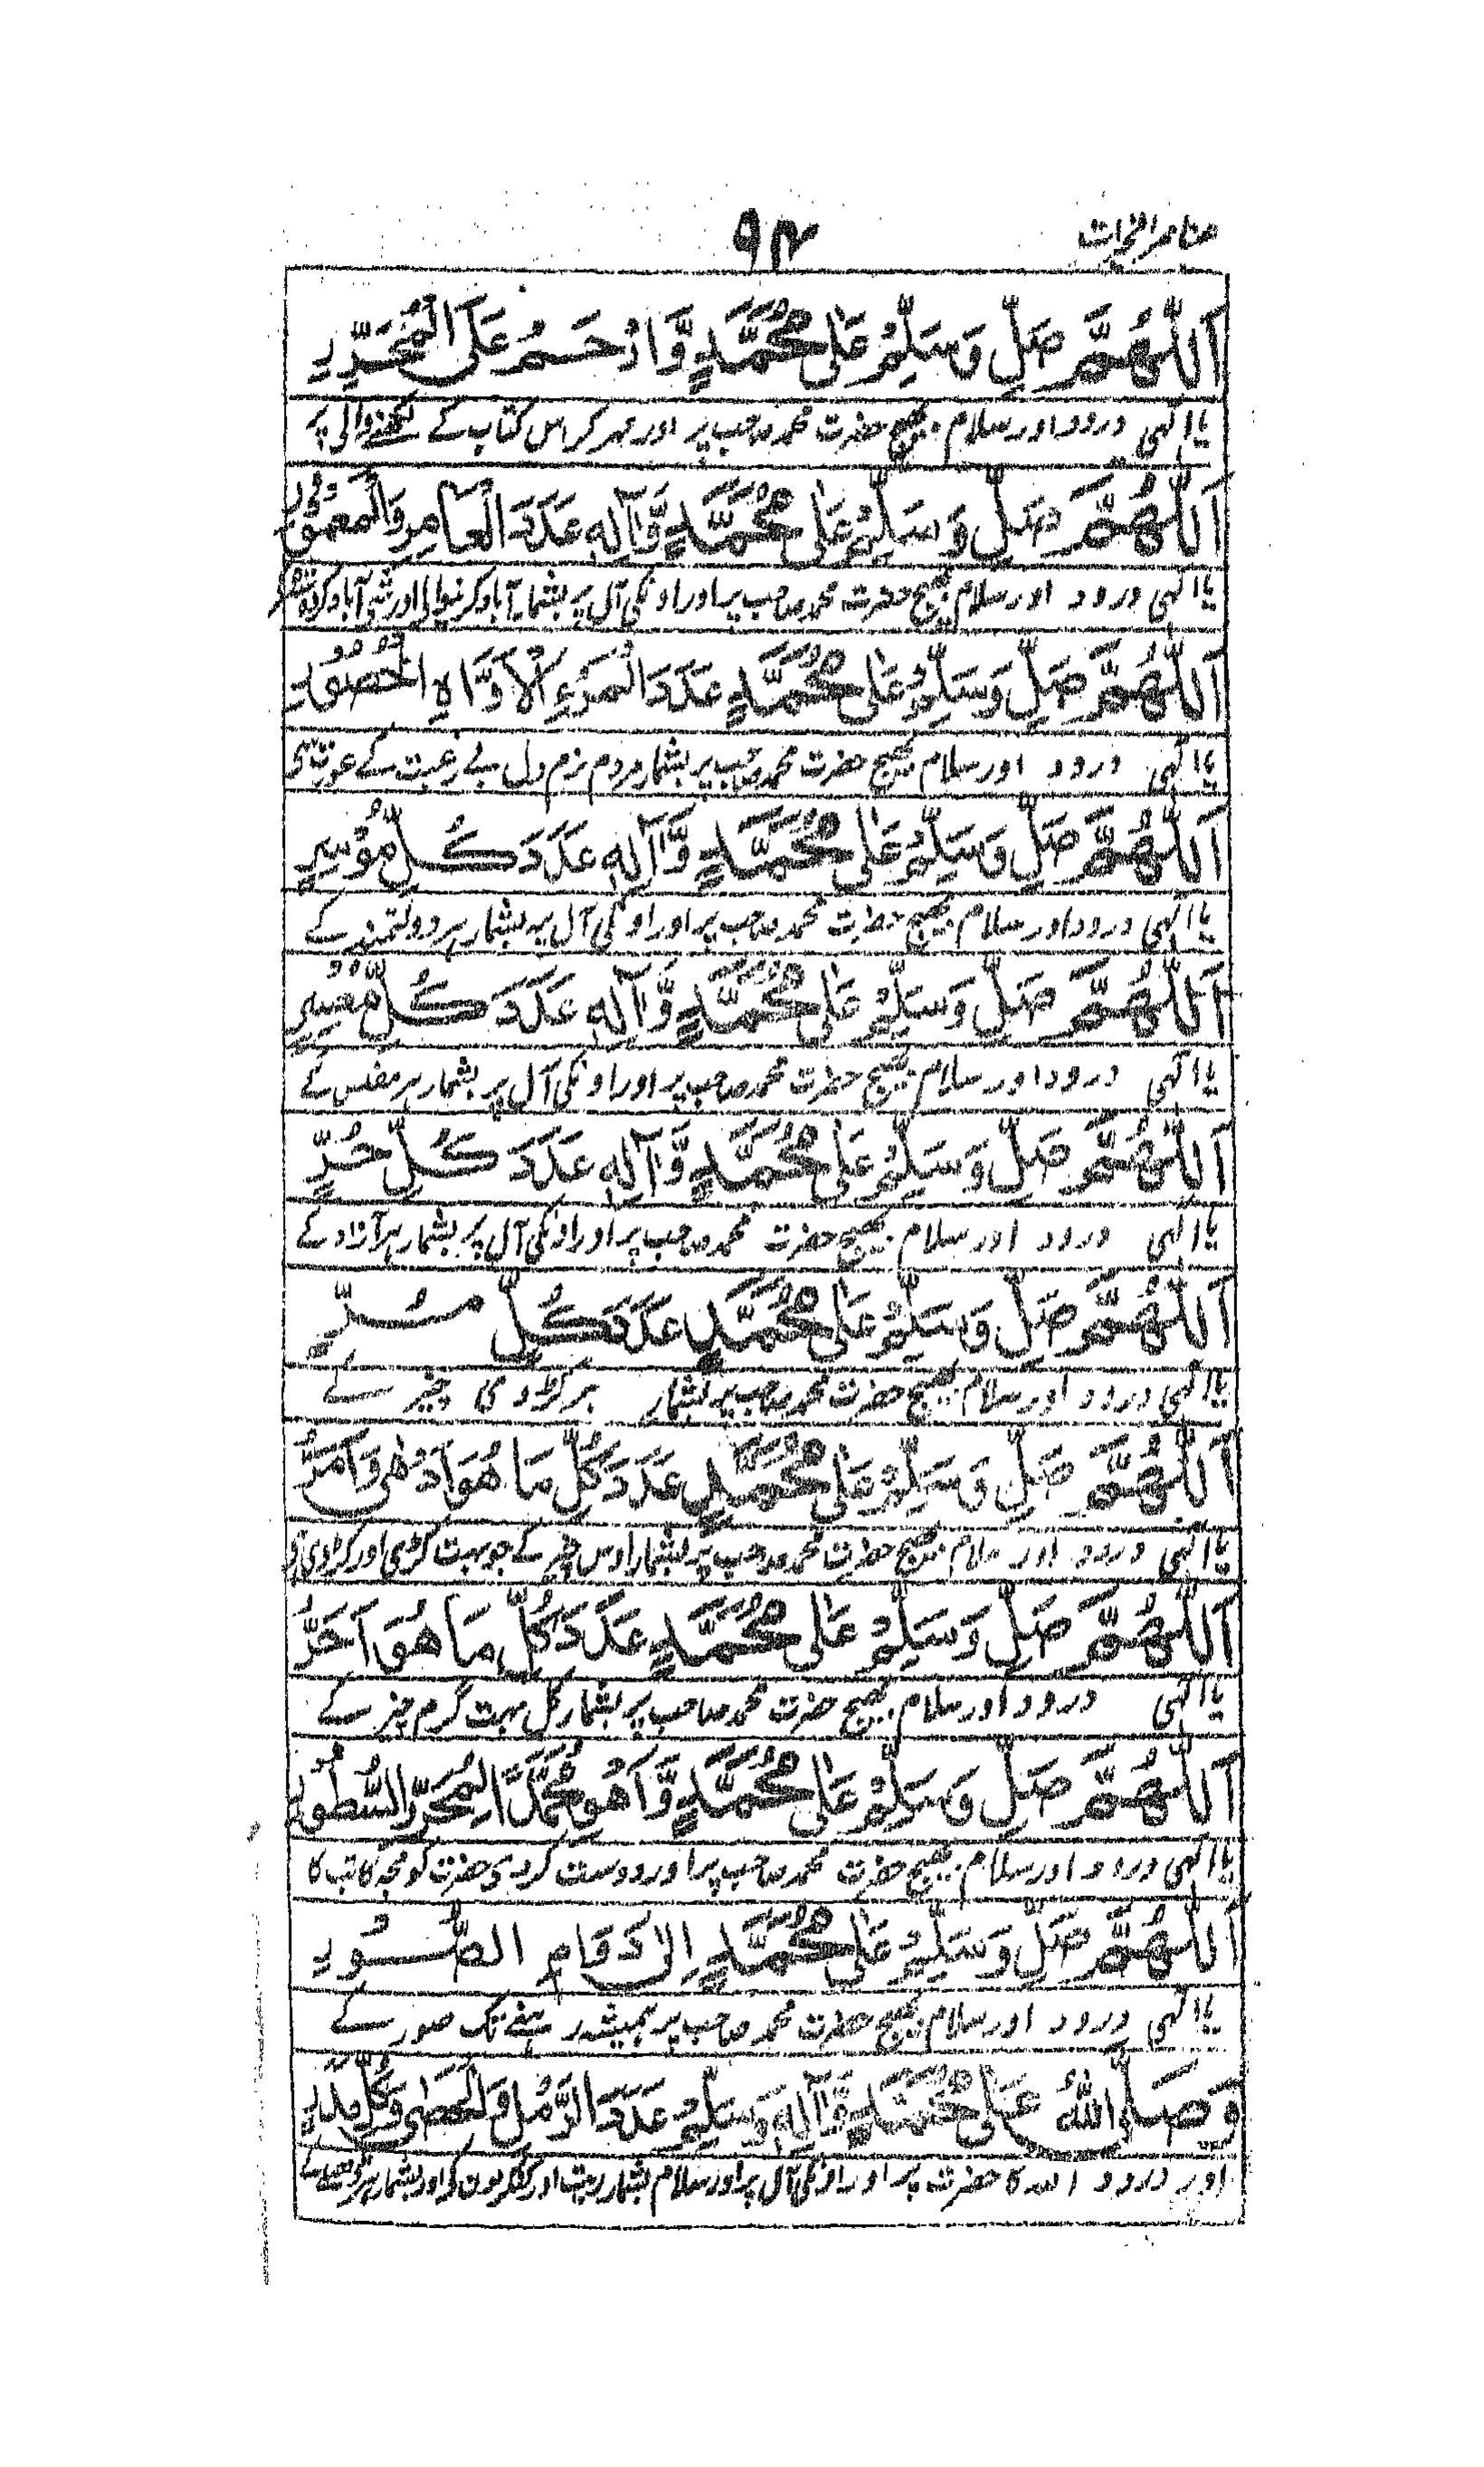 ۹۴
اَللّٰهُمَّ صَلِّ وَسَلِّمْ عَلٰى مُحَمَّدٍ وَّارْحَمْ عَلَى الْمُحَرِّرِ
یا الہی درود اور سلام بھیج حضرت محمد صاحب پر اور مہر کر اس کتاب کے لکھنے والی پر
اَللّٰهُمَّ صَلِّ وَسَلِّمْ عَلٰى مُحَمَّدٍ وَّاٰلِهٖ عَدَدَ الْعَامِرِ وَالْمَعْمُوْرِ
یا الہی درود اور سلام بھیج حضرت محمد صاحب پر اور اونکی آل پر بشمار آباد کرنیوالی اور
اَللّٰهُمَّ صَلِّ وَسَلِّمْ عَلٰى مُحَمَّدٍ عَدَدَ الْمَرْءِ الْاَوَّاهِ الْحَصُوْرِ
یا الہی درود اور سلام بھیج حضرت محمد صاحب پر بشمار مردم نرم دل بے رغبت کے عورت سی
اَللّٰهُمَّ صَلِّ وَسَلِّمْ عَلٰى مُحَمَّدٍ وَّاٰلِهٖ عَدَدَ كُلِّ مُوْسِرٍ
یا الہی درود اور سلام بھیج حضرت محمد صاحب پر اور اونکی آل پر بشمار ہر دولتمند کے
اَللّٰهُمَّ صَلِّ وَسَلِّمْ عَلٰى مُحَمَّدٍ وَّاٰلِهٖ عَدَدَ كُلِّ مُعْسِرٍ
یا الہی درود اور سلام بھیج حضرت محمد صاحب پر اور اونکی آل پر بشمار ہر مفلس کے
اَللّٰهُمَّ صَلِّ وَسَلِّمْ عَلٰى مُحَمَّدٍ وَّاٰلِهٖ عَدَدَ كُلِّ حُرٍّ
یا الہی درود اور سلام بھیج حضرت محمد صاحب پر اور اونکی آل پر بشمار ہر آزاد کے
اَللّٰهُمَّ صَلِّ وَسَلِّمْ عَلٰى مُحَمَّدٍ عَدَدَ كُلِّ مُرٍّ
یا الہی درود اور سلام بھیج حضرت محمد صاحب پر بشمار ہر کڑوی چیز کے
اَللّٰهُمَّ صَلِّ وَسَلِّمْ عَلٰى مُحَمَّدٍ عَدَدَ كُلِّ مَا هُوَ اَدْهٰى وَاَمَرُّ
یا الہی درود اور سلام بھیج حضرت محمد صاحب پر بشمار اوس چیز کے جو بہت کڑی اور کڑوی
اَللّٰهُمَّ صَلِّ وَسَلِّمْ عَلٰى مُحَمَّدٍ عَدَدَ كُلِّ مَا هُوَ اَحَرُّ
یا الہی درود اور سلام بھیج حضرت محمد صاحب پر بشمار کل بہت گرم چیز کے
اَللّٰهُمَّ صَلِّ وَسَلِّمْ عَلٰى مُحَمَّدٍ مُحَمَّدًا السُّطُوْرِ
یا الہی درود اور سلام بھیج حضرت محمد صاحب پر اور دوست کردی حضرت کو مجہ کاتب کا
اَللّٰهُمَّ صَلِّ وَسَلِّمْ عَلٰى مُحَمَّدٍ اِلٰى دَوَامِ الصُّوْرِ
یا الہی درود اور سلام بھیج حضرت محمد صاحب پر ہمیشہ رہنے تک صور کے
وَصَلَّى اللّٰهُ عَلٰى مُحَمَّدٍ وَّاٰلِهٖ وَسَلِّمْ عَدَدَ الرَّمْلِ وَالْحَصٰى وَكُلِّ مَدَرٍ
اور درود اللہ کا حضرت پر اور اونکی آل پر اور سلام بشمار ریت اور کنکریون کی اور بشمار ہر